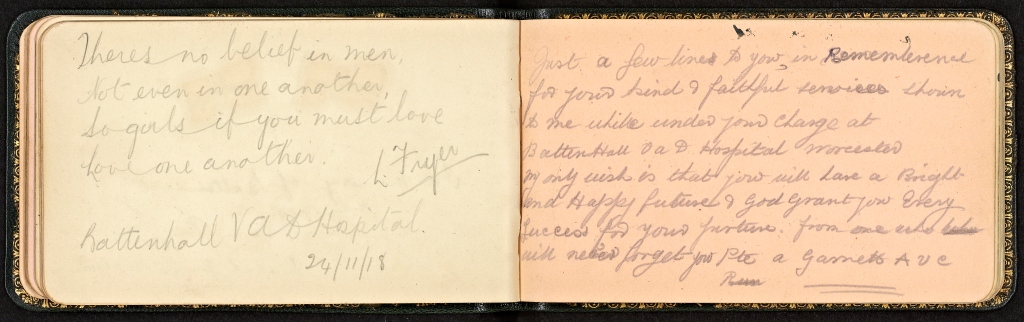 Theres no belief in men,
Not even in one another,
So girls if you must love
Love one another.
L Fryer
Battenhall VAD Hospital.
24/11/18
Just a few lines to you, in Rememberence
for your kind & faithful services shown
to me while under your charge at
Battenhall VaD Hospital Worcester
my only wish is that you will have a Bright
and Happy future & God Grant you Every
Success for your furture. from one who
will never forget you Pte a Garnett AVC